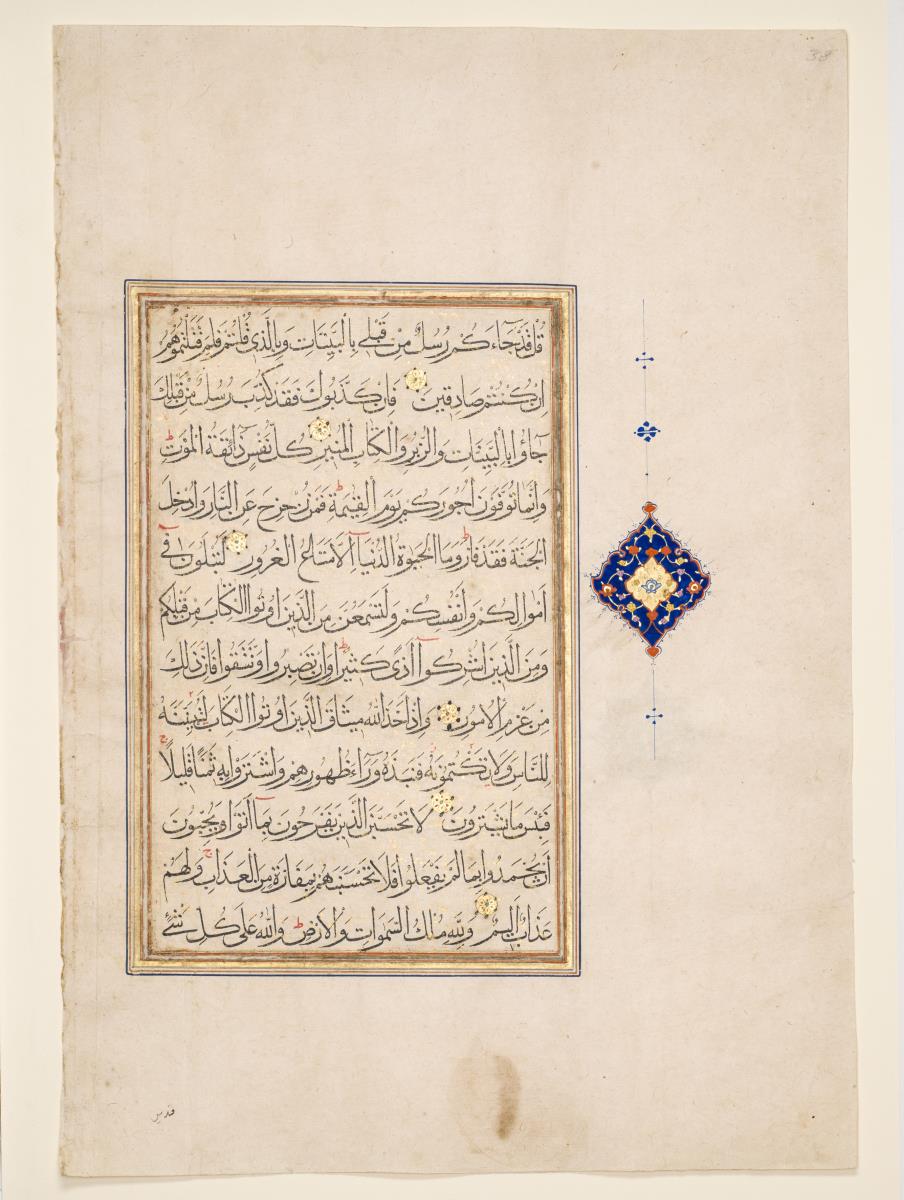 38
قُلْ قَدْ جَآءَكُمْ رُسُلٌ مِنْ قَبْلِى بِالْبَيِّنَاتِ وَبِالَّذِى قُلْتُمْ فَلِمَ قَتَلْتُمُوهُمْ
اِنْ كُنْتُمْ صَادِقِينَ فَاِنْ كَذَّبُوكَ فَقَدْ كُذِّبَ رُسُلٌ مِنْ قَبْلِكَ
جَآؤُا بِالْبَيِّنَاتِ وَالزُّبُرِ وَالْكِتَابِ الْمُنِيرِ كُلُّ نَفْسٍ ذَآئِقَةُ الْمَوْتِ ط
وَاِنَّمَا تُوَفَّوْنَ اُجُورَكُمْ يَوْمَ الْقِيٰمَةِ ط فَمَنْ زُحْزِحَ عَنِ النَّارِ وَاُدْخِلَ
الْجَنَّةَ فَقَدْ فَازَ ط وَمَا الْحَيٰوةُ الدُّنْيَآ اِلَّا مَتَاعُ الْغُرُورِ لَتُبْلَوُنَّ فِىٓ
اَمْوَالِكُمْ وَاَنْفُسِكُمْ وَلَتَسْمَعُنَّ مِنَ الَّذِينَ اُوتُوا الْكِتَابَ مِنْ قَبْلِكُمْ
وَمِنَ الَّذِينَ اَشْرَكُوٓا اَذًى كَثِيرًا ط وَاِنْ تَصْبِرُوا وَتَتَّقُوا فَاِنَّ ذٰلِكَ
مِنْ عَزْمِ الْاُمُورِ وَاِذْ اَخَذَ اللّٰهُ مِيثَاقَ الَّذِينَ اُوتُوا الْكِتَابَ لَتُبَيِّنُنَّهُ
لِلنَّاسِ وَلَا تَكْتُمُونَهُ فَنَبَذُوهُ وَرَآءَ ظُهُورِهِمْ وَاشْتَرَوْا بِهِ ثَمَنًا قَلِيلًا ج
فَبِئْسَ مَا يَشْتَرُونَ لَا تَحْسَبَنَّ الَّذِينَ يَفْرَحُونَ بِمَآ اَتَوْا وَيُحِبُّونَ
اَنْ يُحْمَدُوا بِمَا لَمْ يَفْعَلُوا فَلَا تَحْسَبَنَّهُمْ بِمَفَازَةٍ مِنَ الْعَذَابِ ج وَلَهُمْ
عَذَابٌ اَلِيمٌ وَلِلّٰهِ مُلْكُ السَّمٰوَاتِ وَالْاَرْضِ ط وَاللّٰهُ عَلٰى كُلِّ شَىْءٍ